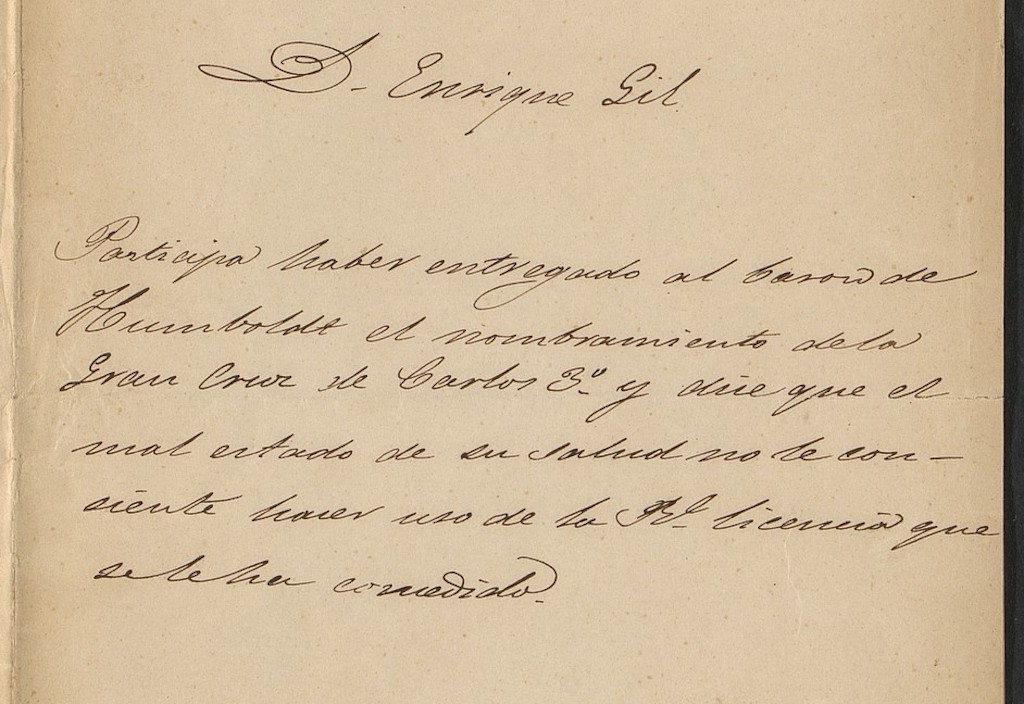 D. Enrique Gil
Participa haber entregado al baron de
Humboldt el nombramiento de la
Gran Cruz de Carlos 3º y dice que el
mal estado de su salud no le con-
siente hacer uso de la Rl. licencia que
se le ha concedido.